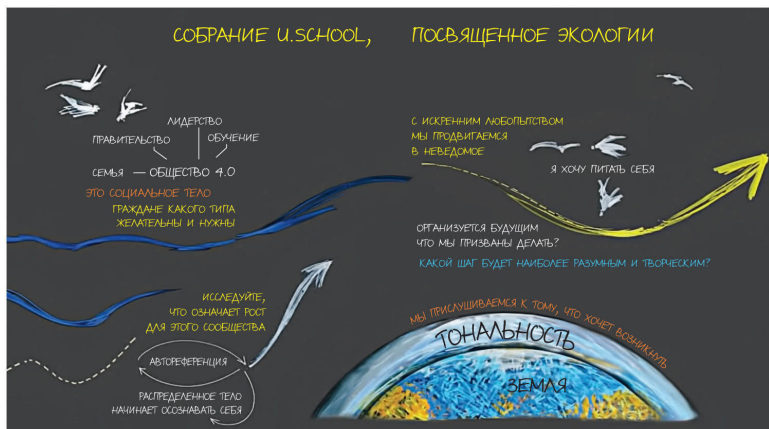 СОБРАНИЕ U.SCHOOL, ПОСВЯЩЕННОЕ ЭКОЛОГИИ
ЛИДЕРСТВО
ПРАВИТЕЛЬСТВО
ОБУЧЕНИЕ
СЕМЬЯ — ОБЩЕСТВО 4.0
ЭТО СОЦИАЛЬНОЕ ТЕЛО
ГРАЖДАНЕ КАКОГО ТИПА
ЖЕЛАТЕЛЬНЫ И НУЖНЫ
ИССЛЕДУЙТЕ,
ЧТО ОЗНАЧАЕТ РОСТ
ДЛЯ ЭТОГО СООБЩЕСТВА
АВТОРЕФЕРЕНЦИЯ
РАСПРЕДЕЛЕННОЕ ТЕЛО
НАЧИНАЕТ ОСОЗНАВАТЬ СЕБЯ
С ИСКРЕННИМ ЛЮБОПЫТСТВОМ
МЫ ПРОДВИГАЕМСЯ
В НЕВЕДОМОЕ
Я ХОЧУ ПИТАТЬ СЕБЯ
ОРГАНИЗУЕТСЯ БУДУЩИМ
ЧТО МЫ ПРИЗВАНЫ ДЕЛАТЬ?
КАКОЙ ШАГ БУДЕТ НАИБОЛЕЕ РАЗУМНЫМ И ТВОРЧЕСКИМ?
МЫ ПРИСЛУШИВАЕМСЯ К ТОМУ, ЧТО ХОЧЕТ ВОЗНИКНУТЬ
ТОНАЛЬНОСТЬ
ЗЕМЛЯ